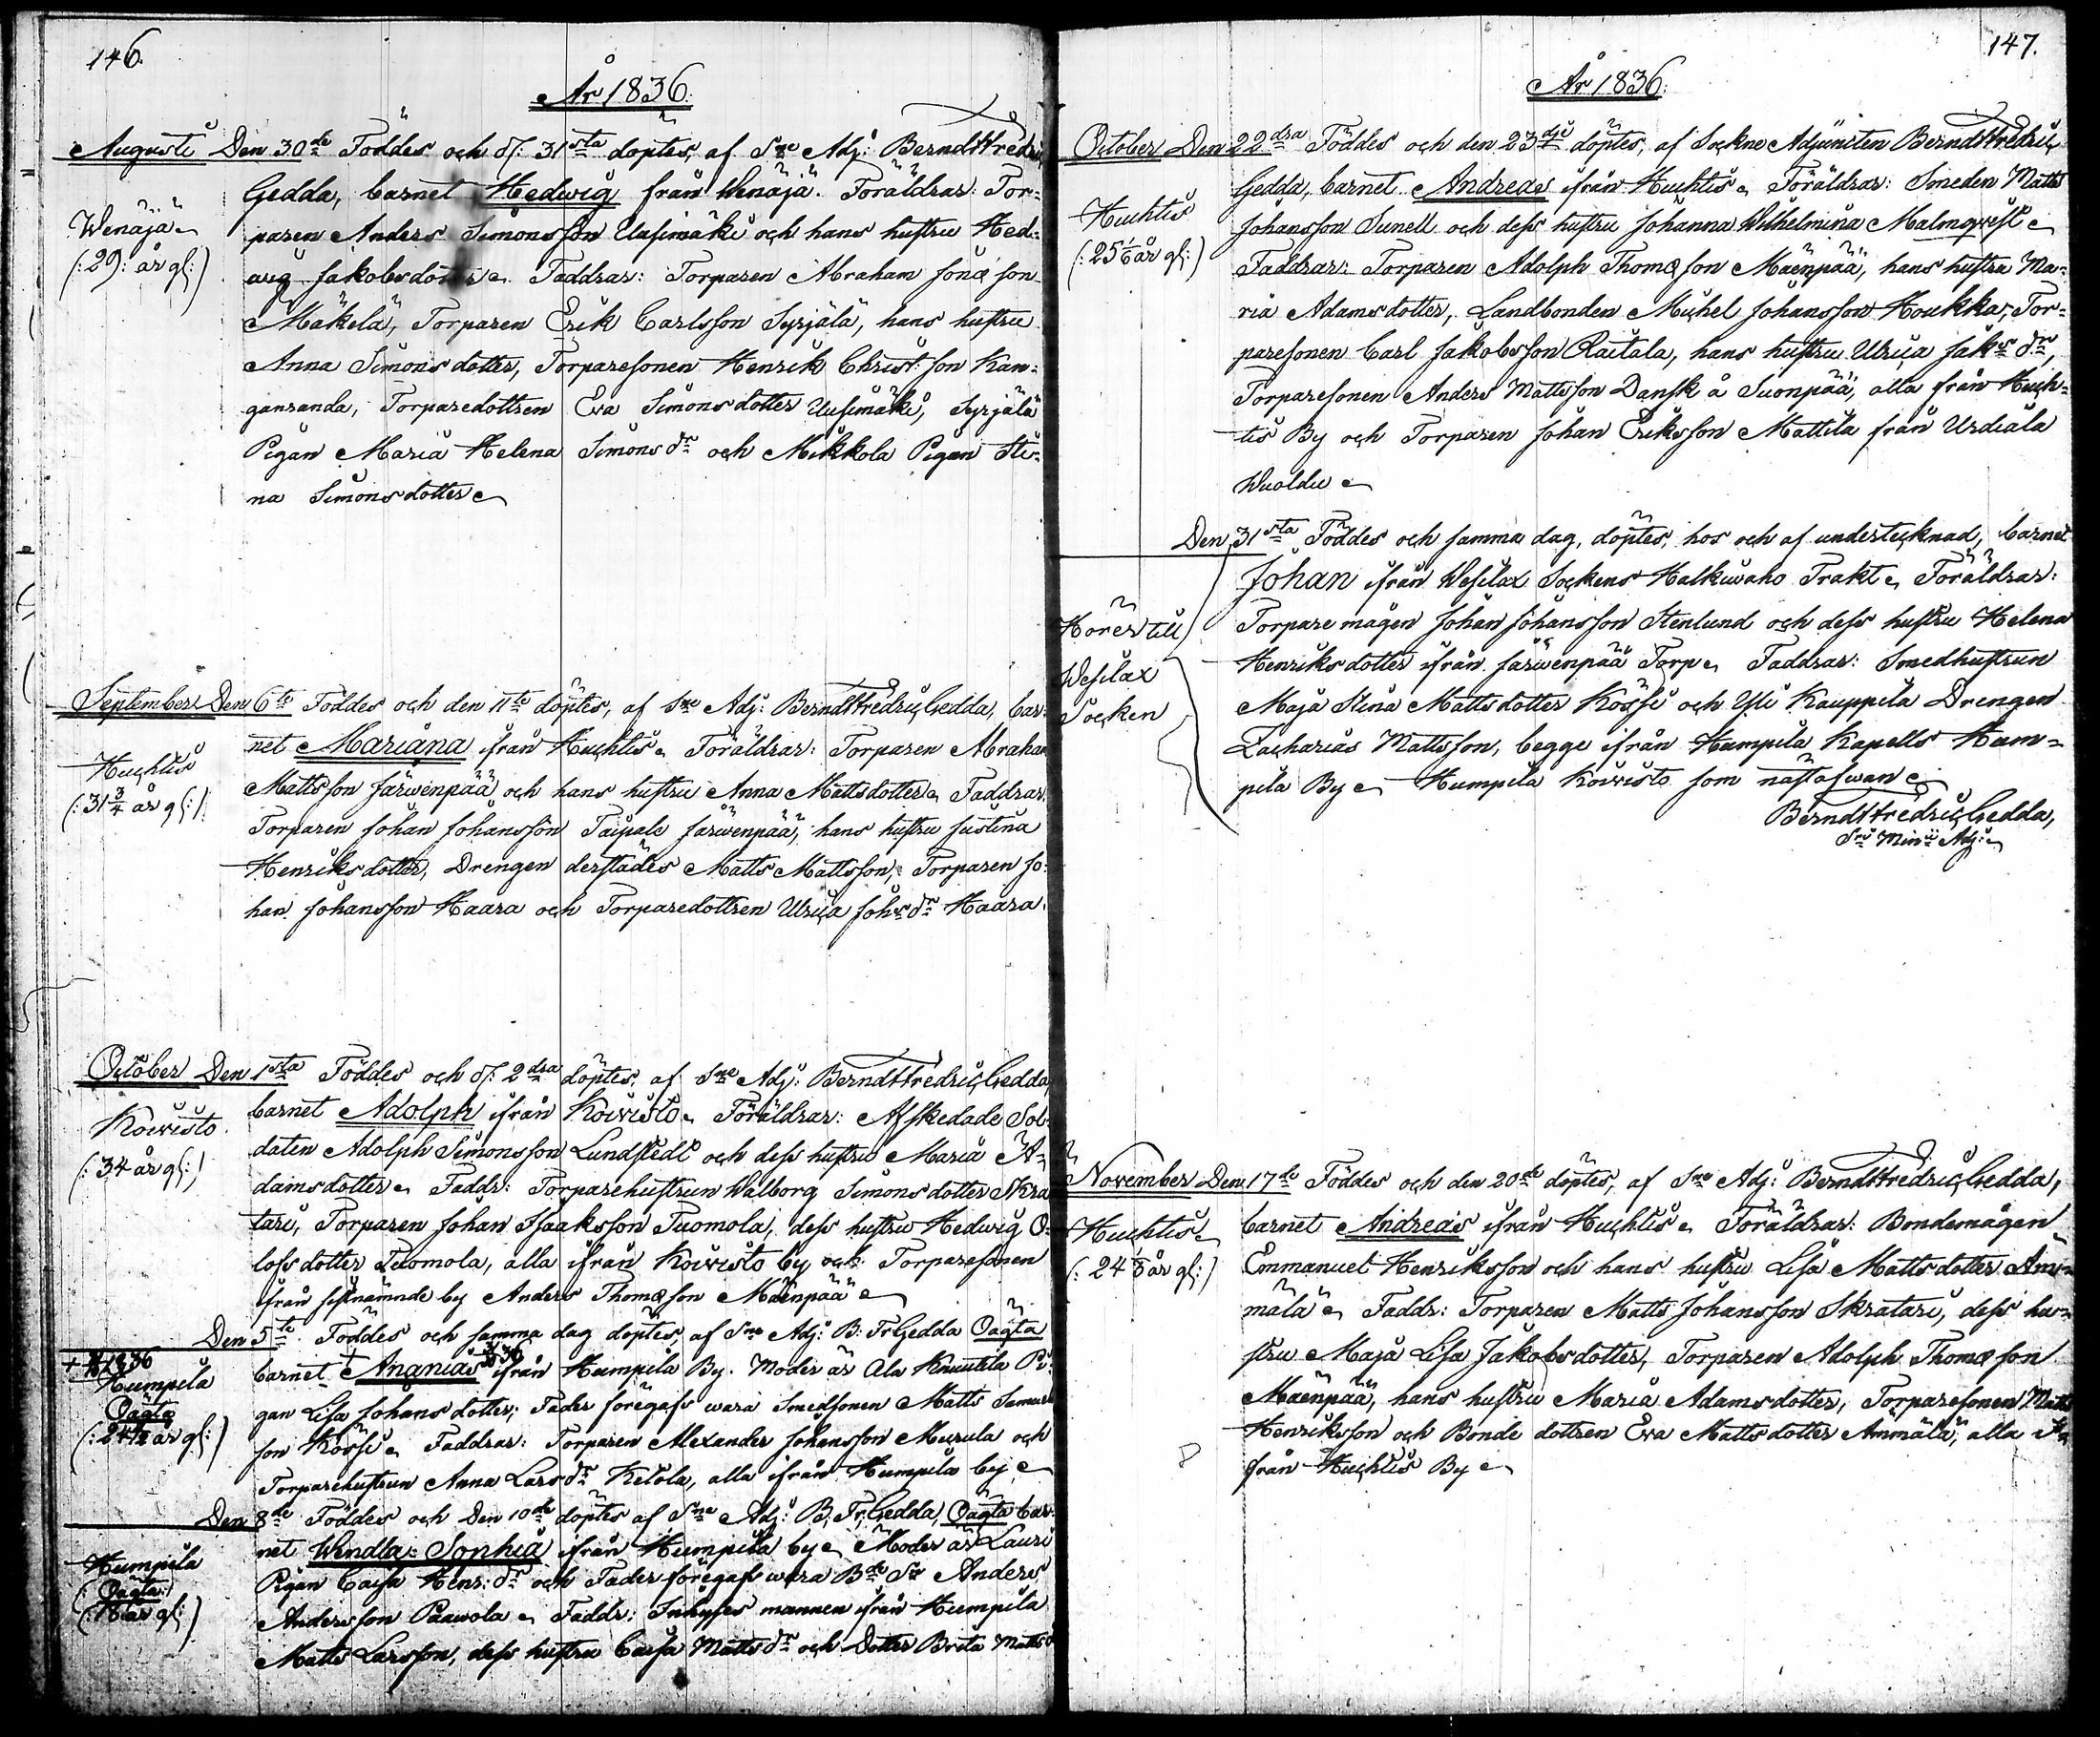 146.
År 1836.
Augusti Den 30de Föddes och d: 31sta döptes, af Sne Adj: Berndt Fredric
Gedda, barnet Hedwig från Wenäjä. Föräldrar: Tor-
Wenäjä
paren Anders Simonsson Uusimäki och hans hustru Hed-
(: 29: år gl:)
wig Jakobsdotter. Faddrar: Torparen Abraham Jonæ son
Mäkelä, Torparen Erik Carlsson Syrjälä, hans hustru
Anna Simonsdotter, Torparesonen Henrik Christ: son Kan-
gansanda, Torparedottren Eva Simonsdotter Uusimäki, Syrjälä
Pigan Maria Helena Simonsdr och Mikkola Pigan Sti-
na Simonsdotter
September Den 6te Föddes och den 11te döptes, af Sne Adj: Berndt Fredric Gedda, bar-
net Mariana ifrån Huchtis. Föräldrar: Torparen Abraham
Huchtis
Mattsson Järwenpää och hans hustru Anna Mattsdotter. Faddrar:
(: 31 3/4 år gl:)
Torparen Johan Johansson Taipale Järwenpää, hans hustru Justina
Henriksdotter, Drengen derstädes Matts Mattsson, Torparen Jo-
han Johansson Haara och Torparedottren Ulrica Johs dr Haara.
October Den 1sta Föddes och d: 2dra döptes, af Sne Adj: Berndt Fredric Gedda,
barnet Adolph ifrån Koiwisto. Föräldrar: Afskedade Sol-
Koiwisto
daten Adolph Simonsson Lundstedt och dess hustru Maria A-
(: 34 år gl:)
damsdotter. Faddr: Torparehustrun Walborg Simonsdotter Skra
tari, Torparen Johan Isaaksson Tuomola, dess hustru Hedwig O-
lofsdotter Tuomola, alla ifrån Koiwisto by och Torparesonen
ifrån sistnämnde by Anders Thomæson Mäenpää
Den 5te Föddes och samma dag döptes, af Sne Adj: B: Fr Gedda Oägta
barnet Ananias ifrån Humpila By. Moder är Ala Knuutila Pi-
Humpila
gan Lisa Johansdotter; Fader föregafs wara Smedsonen Matts Samuels
Oägta
(: 24 1/2 år gl:)
son Kössi. Faddrar: Torparen Alexander Johansson Murula och
Torparehustrun Anna Larsdr Ketola, alla ifrån Humpila by
Den 8de Föddes och Den 10de döptes af Sne Adj: B: Fr: Gedda, Oägta bar-
net Wendla Sophia ifrån Humpila by. Moder är Lauri
Humpila
Pigan Caisa Henr: dr och Fader föregafs wara Bde Sn Anders
(Oägta:)
Andersson Paawola. Faddr: Inhyses mannen ifrån Humpila
Matts Larsson, dess hustru Caisa Mattsdr och Dotter Brita Matts d
147.
År 1836.
October Den 22dra Föddes och den 23dje döptes, af Sockne Adjuncten Berndt Fredric
Gedda, barnet Andreas ifrån Huchtis. Föräldrar: Smeden Matts
Huchtis
Johansson Sunell och dess hustru Johanna Wilhelmina Malmqwist
(: 25 1/6 år gl:)
Faddrar: Torparen Adolph Thomæson Mäenpää, hans hustru Ma-
ria Adamsdotter, Landbonden Michel Johansson Houkka, Tor-
paresonen Carl Jakobsson Raitala, hans hustru Ulrica Jaks dr,
Torparesonen Anders Mattsson Dansk å Suonpää, alla från Huch-
tis By och Torparen Johan Eriksson Mattila från Urdiala
Wuoldu
Den 31sta Föddes och samma dag, döptes, hos och af undertecknad, barnet
Johan ifrån Wesilax Sockens Halkiwaho Trakt. Föräldrar:
Hörer till
Torpare mågen Johan Johansson Stenlund och dess hustru Helena
Henriksdotter ifrån Järwenpää Torp. Faddrar: Smedhustrun
Wesilax
Maja Stina Mattsdotter Kössi och Yli Kauppila Drengen
Socken
Zacharias Mattsson, begge ifrån Humpila Kapells Hum-
pila By Humpila Koiwisto som näst ofwan
Berndt Fredric Gedda,
Sne Minii Adj:
November Den 17de Föddes och den 20de döptes, af Sne Adj: Berndt Fredric Gedda,
barnet Andreas ifrån Huchtis. Föräldrar: Bondemågen
Huchtis
Emmanuel Henriksson och hans hustru Lisa Mattsdotter Äm-
mälä. Faddr: Torparen Matts Johansson Skratari, dess hu-
stru Maja Lisa Jakobsdotter, Torparen Adolph Thomæson
Mäenpää, hans hustru Maria Adamsdotter, Torparesonen Matts
Henriksson och Bonde dottren Eva Mattsdotter Ämmälä, alla i-
från Huchtis By